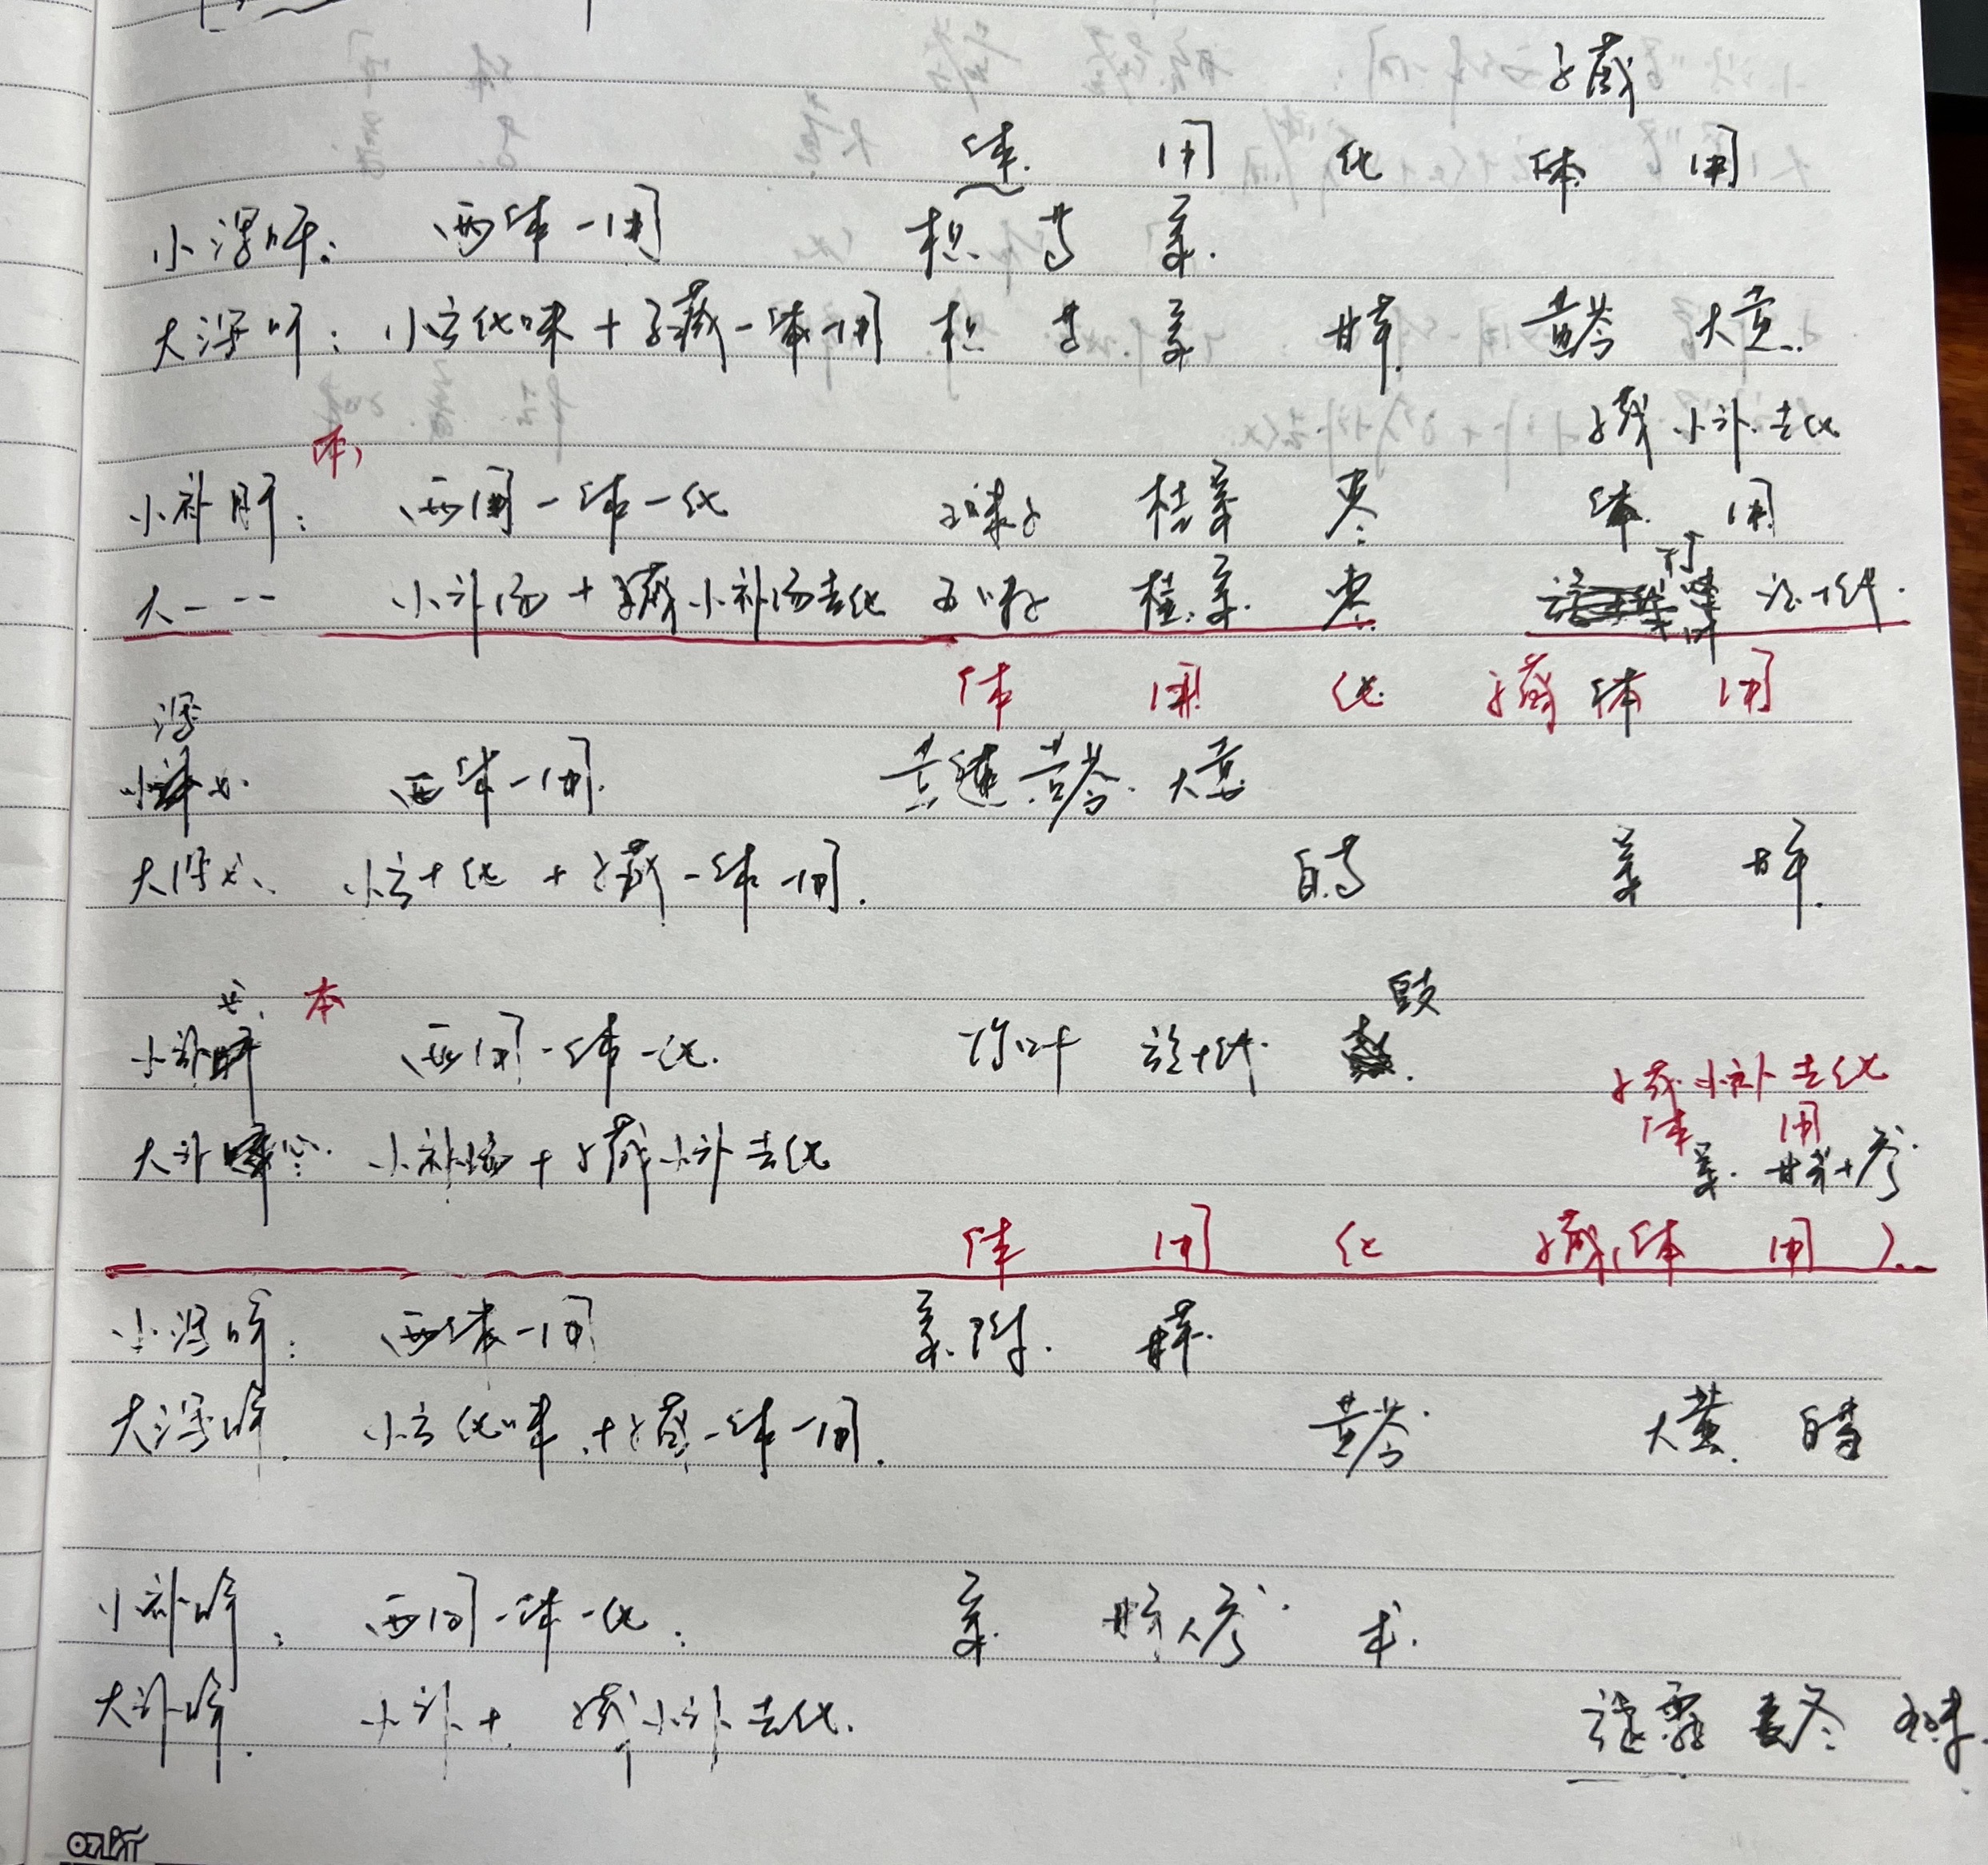 子藏
体 用 化 体 用
小泻肝: 两体一用 枳 芍 姜.
大泻肝: 小方化味+子藏一体一用 枳 芍 姜 甘草. 黄芩 大黄.
子藏小补去化
本
小补肝: 两用一体一化 五味子 桂姜 枣 体 用
大--- 小补汤+子藏小补汤去化 五味子 桂.姜. 枣. 竹叶
体 用 化 子藏 体 用
泻
小 心. 两体一用. 黄连 黄芩. 大黄
大泻心、 小方+化+子藏一体一用. 白芍 姜 甘草.
心. 本 豉
小补 两用一体一化. 竹叶
子藏小补去化
体 用
大补心. 小补汤+子藏小补去化 姜. 甘草+参.
体 用 化 子藏 体 用
小泻脾: 两体一用 姜.附. 甘草.
大泻脾. 小方化味+子藏一体一用. 黄芩. 大黄. 白芍
小补脾: 两用一体一化: 姜. 甘草人参 术.
大补脾. 小补+ 子藏小补去化. 麦冬 五味.